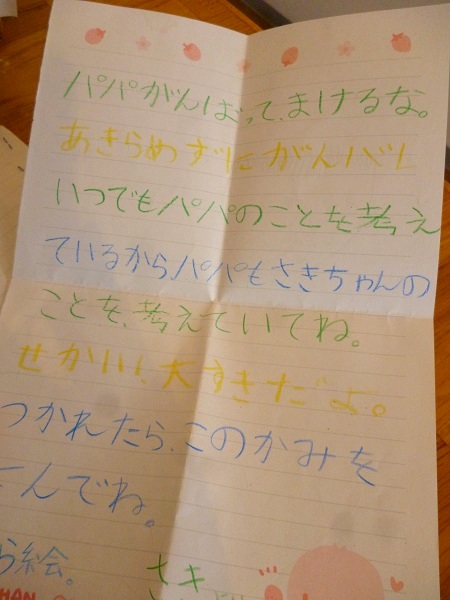 パパがんばって、まけるな。
あきらめずにがんバレ
いつでもパパのことを考え
ているから、パパもさきちゃんの
ことを、考えていてね。
せかい1、大すきだよ。
つかれたら、このかみを
んでね。
ら絵。 さき
HAN